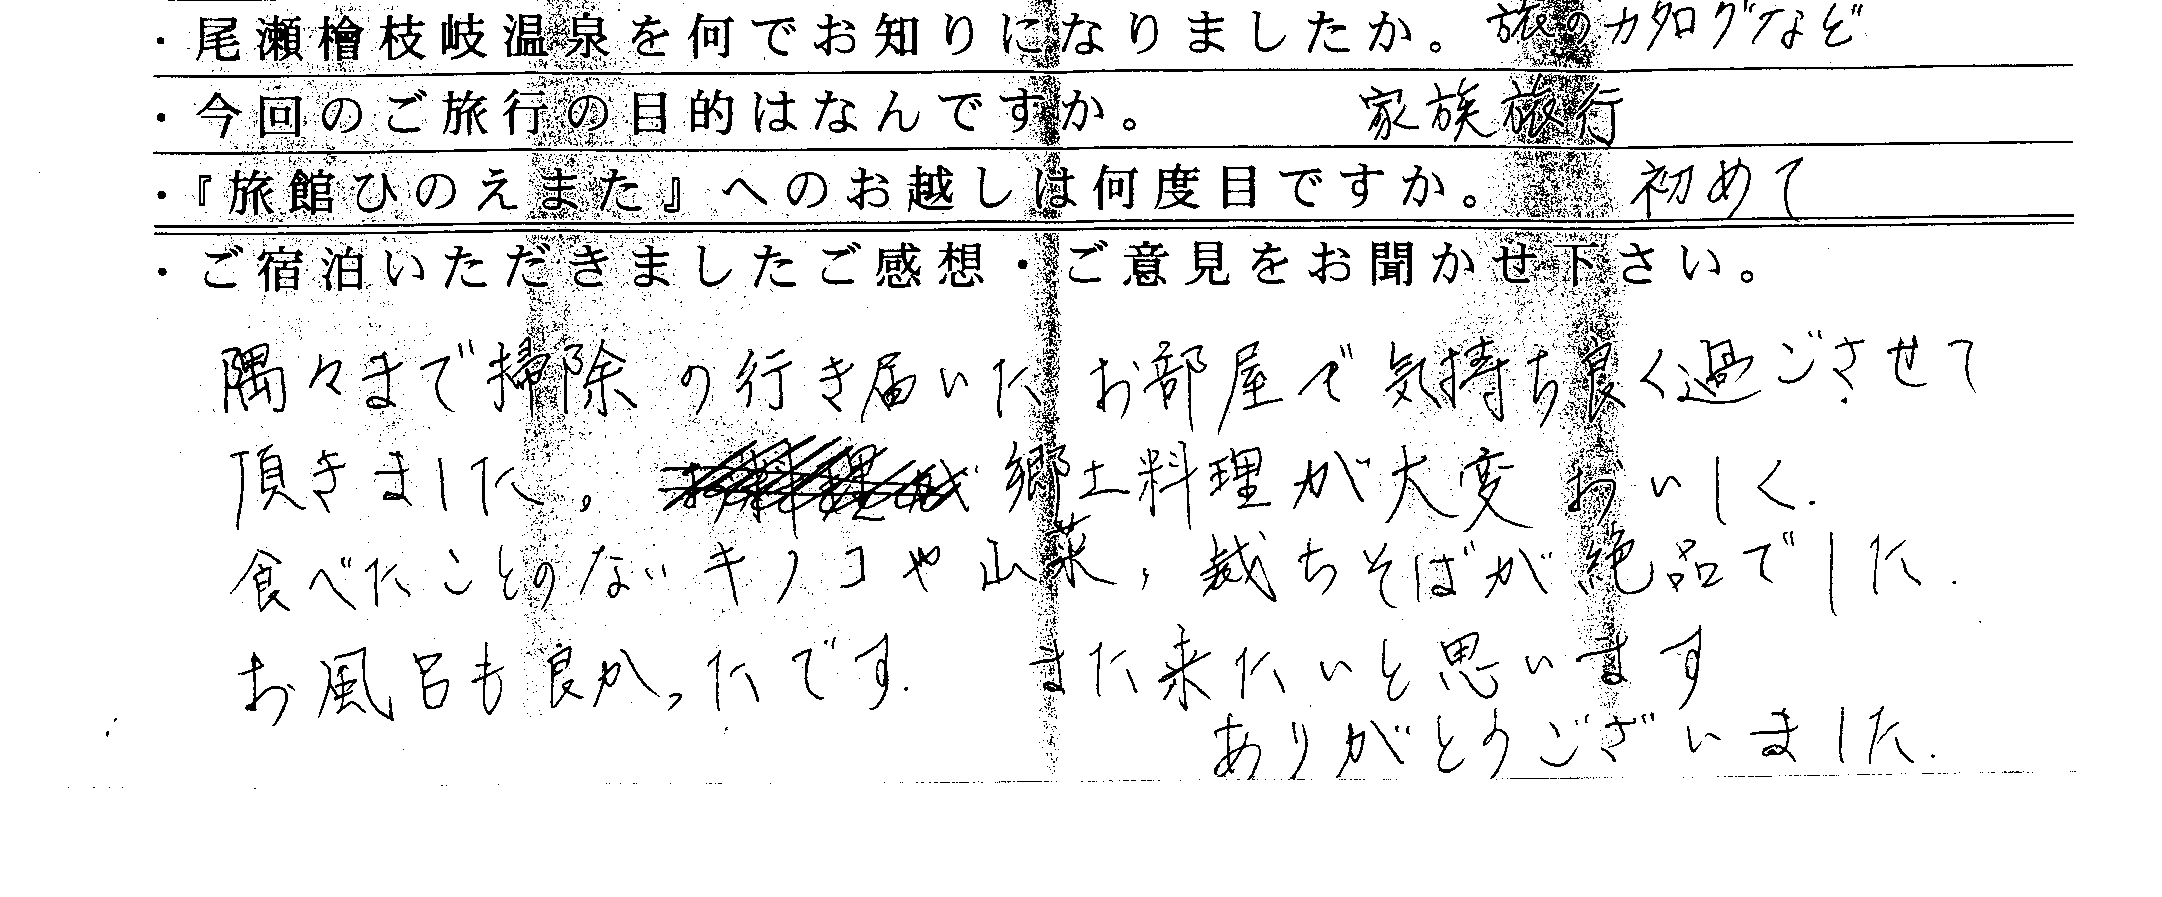 ・尾瀬檜枝岐温泉を何でお知りになりましたか。 旅のカタログなど
・今回のご旅行の目的はなんですか。 家族旅行
・『旅館ひのえまた』へのお越しは何度目ですか。 初めて
・ご宿泊いただきましたご感想・ご意見をお聞かせ下さい。
隅々まで掃除の行き届いたお部屋で気持ち良く過ごさせて
頂きました。 郷土料理が大変おいしく.
食べたことのないキノコや山菜、裁ちそばが絶品でした.
お風呂も良かったです. また来たいと思います
ありがとうございました.